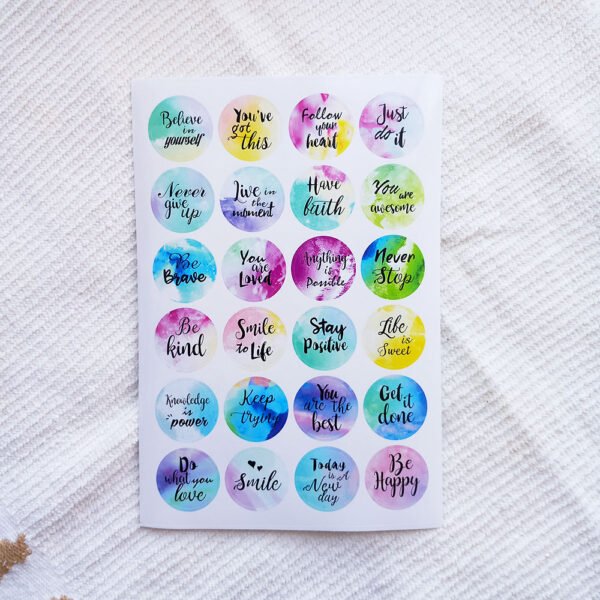 Believe
in
yourself
You've
got
this
Follow
your
heart
Just
do it
Never
give
up
Live in
the
moment
Have
faith
You
are
awesome
Be
Brave
You
are
Loved
Anything
is
Possible
Never
Stop
Be
kind
Smile
to Life
Stay
Positive
Life
is
Sweet
Knowledge
is
power
Keep
trying
You
are the
best
Get
it
done
Do
what you
love
Smile
Today
is A
New
day
Be
Happy